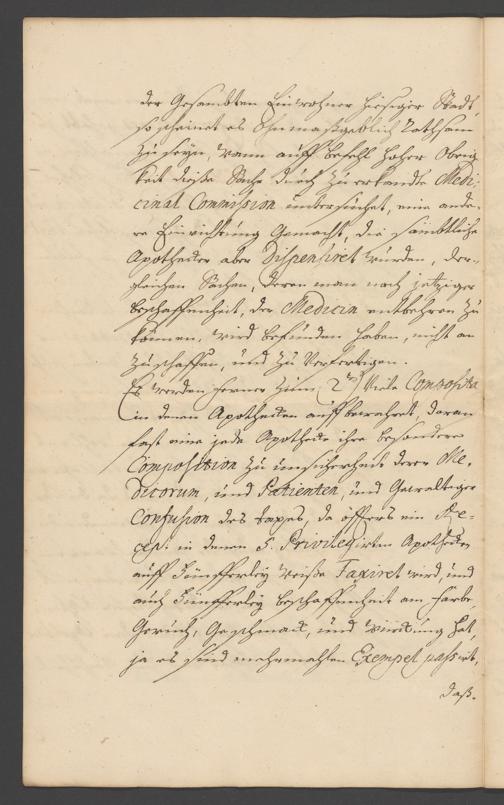 der Gesambten Einwohner hiesiger Stadt,
so scheinet es ohnmaßgeblich Rathsam
zu seyn, wann auff befehl hoher Obrig
keit dieße Sache durch zu erkandte Medi-
cinal Commission untersuchet, eine ande-
re Einrichtung gemacht, die sämbtliche
Apothecker aber Dispensiret würden, der-
gleichen Sachen, deren man nach jetziger
beschaffenheit, der Medicin entbehren zu
können, wird befunden haben, nicht an
zuschaffen, und zu verfertigen.
Es werden ferner zum 2ten Viele Composita
in denen Apothecken auffbewahret, daran
fast eine jede Apothecke ihre besondere
Composition zu unsicherheit derer Me-
dicorum, und Patienten, und Gewaltiger
Confusion des taxes, da öffters ein Re-
cept in denen 5. Privilegirten Apothecken
auff Fünfferley weiße Taxiret wird, und
auch Fünfferley beschaffenheit am Farbe
Geruch, Geschmack, und würckung hat,
ja es sind mehrmahlen Exempel passirt,
daß.